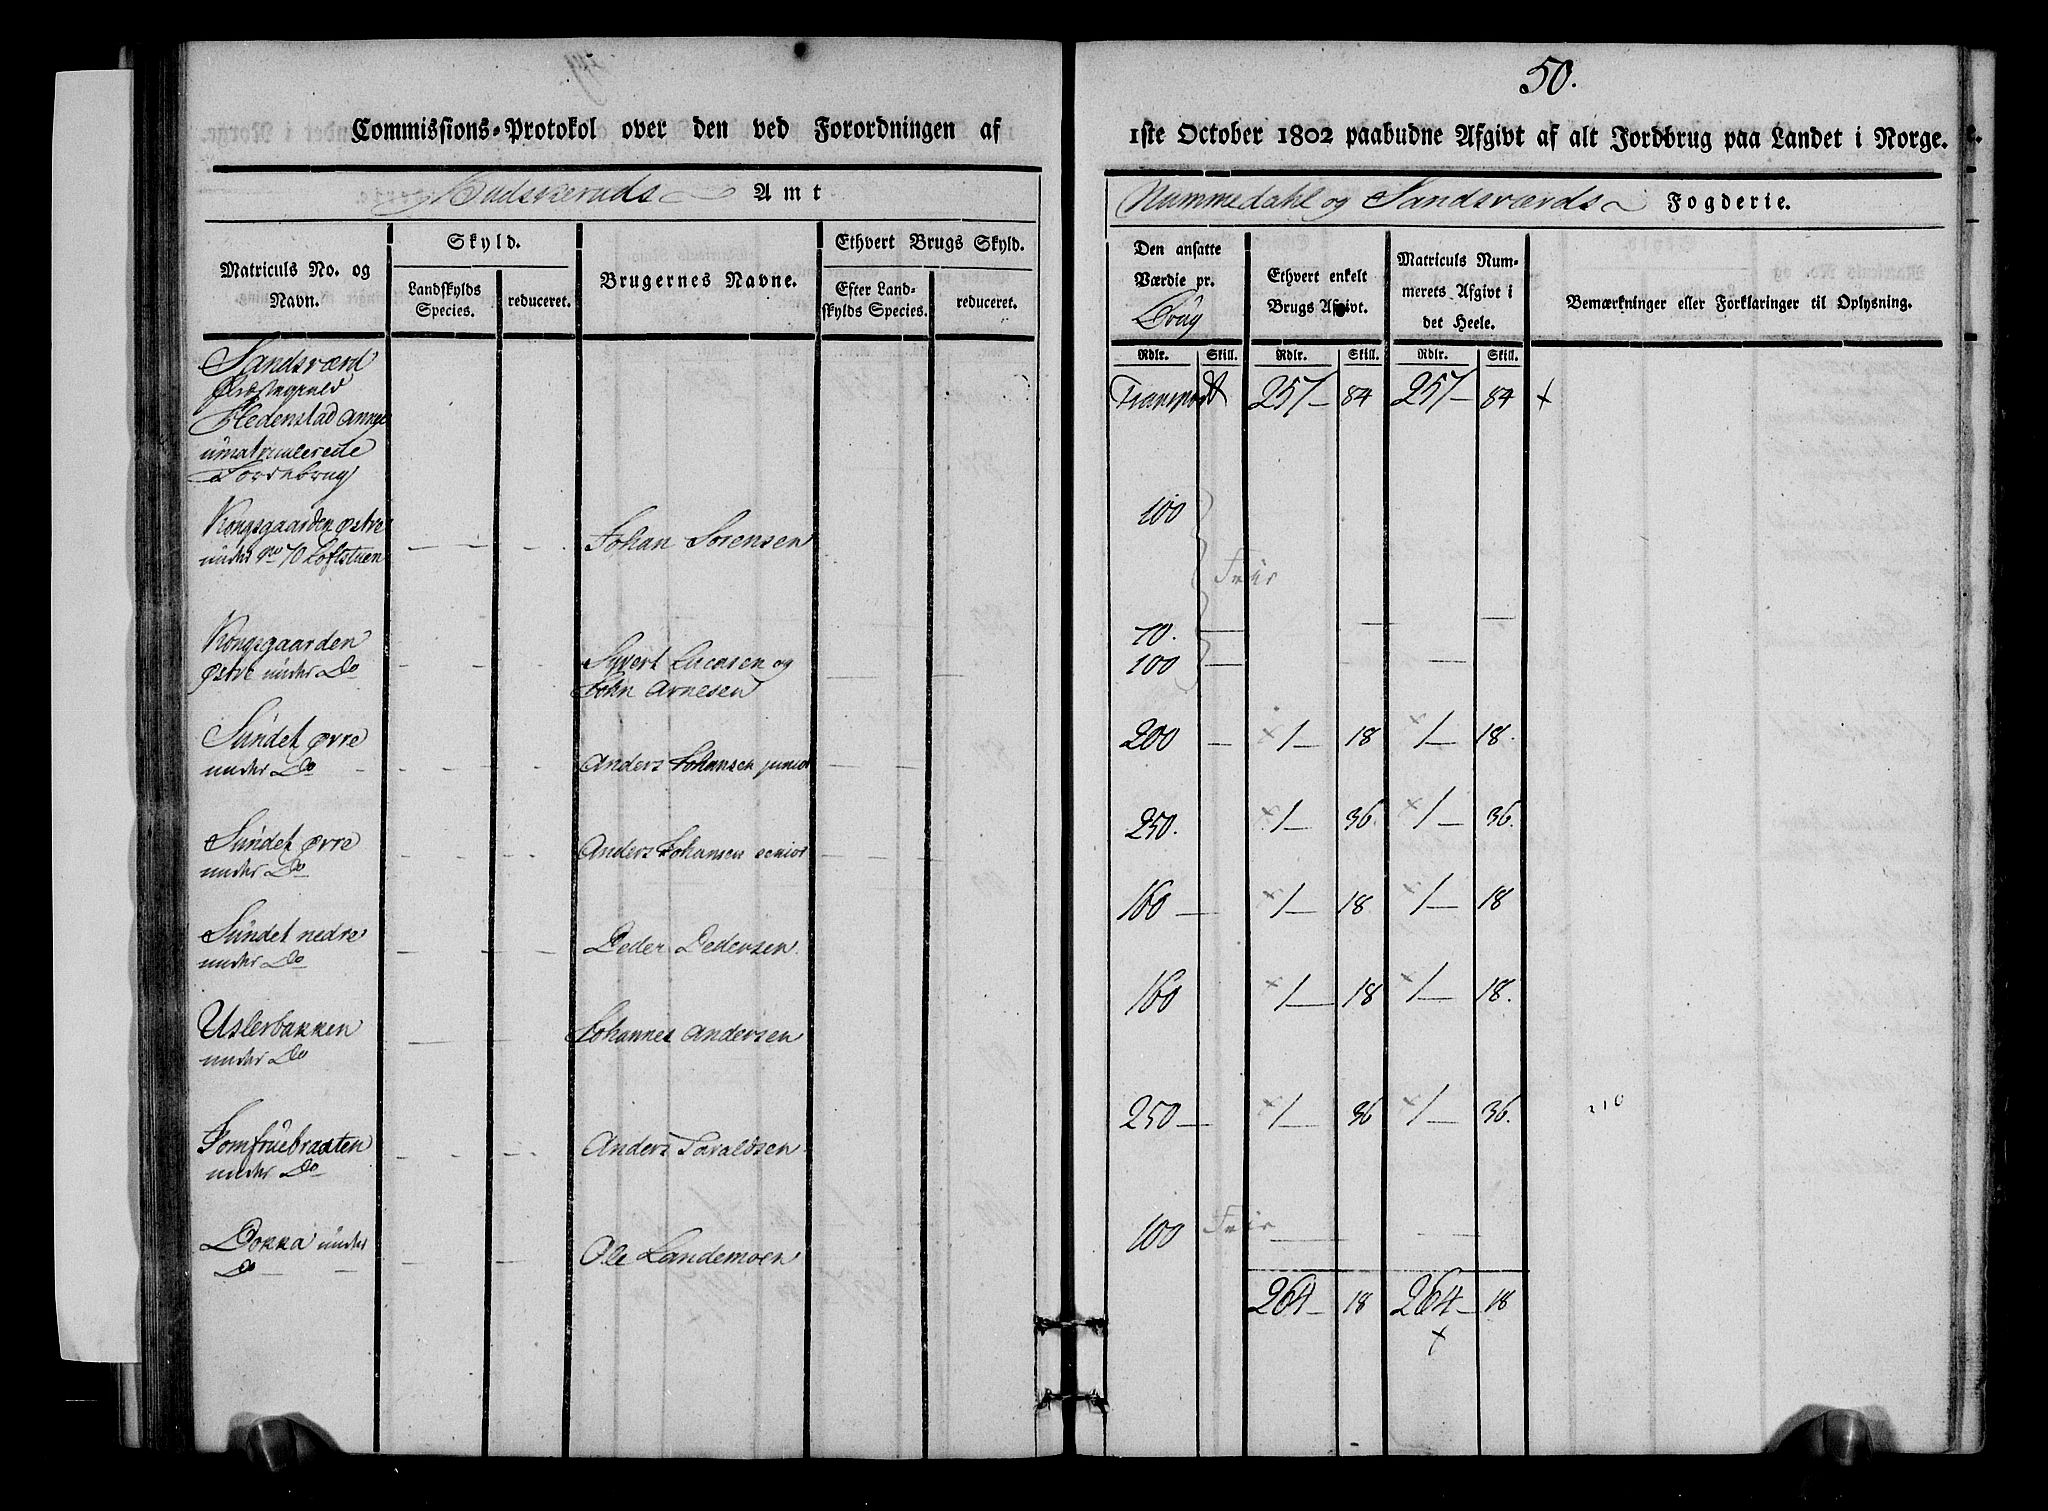 50.
Commissions-Protokol over den ved Forordningen af
1ste October 1802 paabudne Afgivt af alt Jordbrug paa Landet i Norge.
Budskeruds Amt
Nummedahl og Sandsværds Fogderie.
Matriculs No. og Navn.
Skyld.
Landskylds Species.
reduceret.
Brugernes Navne.
Ethvert Brugs Skyld.
Efter Landskylds Species.
reduceret.
Den ansatte Værdie pr. Brug
Ethvert enkelt Brugs Afgivt.
Matriculs Nummerets Afgivt i det Heele.
Bemærkninger eller Forklaringer til Oplysning.
Rdlr. Skill. Rdlr. Skill. Rdlr. Skill.
Sandsværd
Præstegield
Hedenstad Annex
umatriculerede
Jordebrug
Transport 257 – 84 257 – 84 +
Kongsgaarden østre
under No 70 Loftstuen — — — Johan Sorensen 100
Friir
70. — — —
Kongsgaarden
østre under Do - - - Syvert Lucasen og
John Arnesen — — 100 — —
Sundet øvre
under Do - - - - Anders Johansen junior — — 200 — 1 — 18 1 — 18.
Sundet øvre
under Do - - - Anders Johansen senior — — 250. 1 — 36. 1 — 36.
Sundet nedre
under Do - - - Peder Pedersen 160 — 1 — 18 1 — 18
Uslerbakken
under Do - - - Johannes Andersen 160 1 — 18 1 — 18.
Jomfruebraaten
under Do - - - Anders Taraldsen 250 — 1 — 36 1 — 36.
Dokka under
Do — — - - Ole Landemoen 100 Friir — —
264 – 18 264 – 18
+